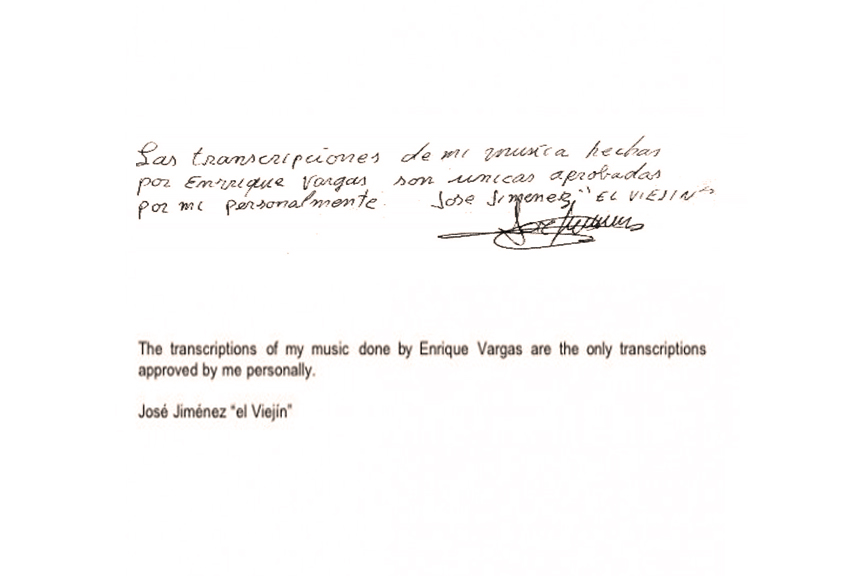 Las transcripciones de mi musica hechas
por Enrrique Vargas son unicas aprobadas
por mi personalmente. Jose Jimenez "EL VIEJIN"
The transcriptions of my music done by Enrique Vargas are the only transcriptions
approved by me personally.
José Jiménez "el Viejín"